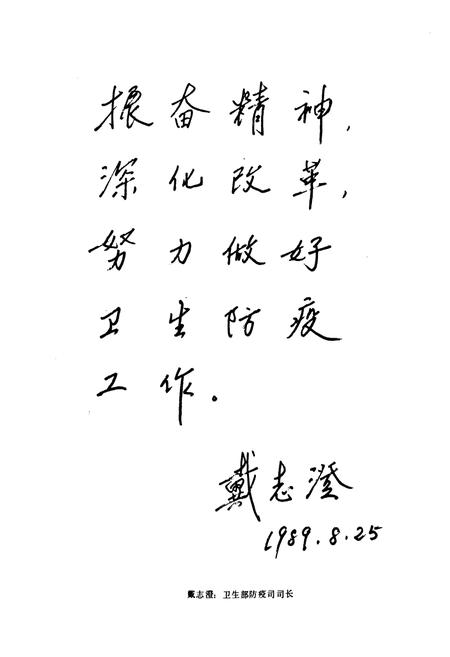 振奋精神,
深化改革,
努力做好
卫生防疫
工作.
戴志澄
1989.8.25
戴志澄：卫生部防疫司司长